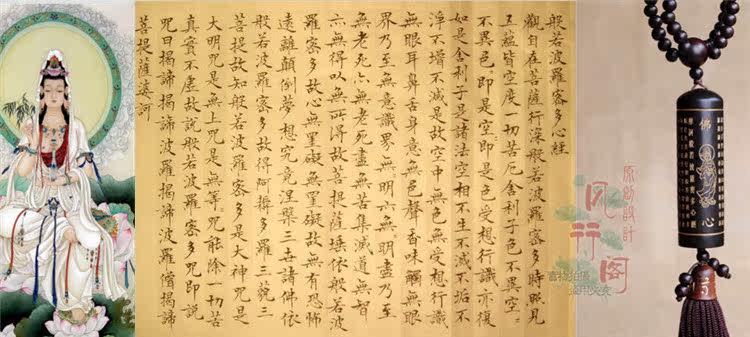 般若波羅蜜多心經
觀自在菩薩行深般若波羅蜜多時照見
五蘊皆空度一切苦厄舍利子色不異空
不異色即是空即是色受想行識亦復
如是舍利子是諸法空相不生不滅不垢不
淨不增不減是故空中無色無受想行識
無眼耳鼻舌身意無色聲香味觸無眼
界乃至無意識界無明亦無明盡乃至
無老死亦無老死盡無苦集滅道無智
亦無得以無所得故菩提薩埵依般若波
羅蜜多故心無罣礙無罣礙故無有恐怖
遠離顛倒夢想究竟涅槃三世諸佛依
般若波羅蜜多故得阿耨多羅三藐三
菩提故知般若波羅蜜多是大神咒是
大明咒是無上咒是無等咒能除一切苦
真實不虛故說般若波羅蜜多咒即說
咒曰揭諦揭諦波羅揭諦波羅僧揭諦
菩提薩婆訶
佛
心
原創設計
风行阁